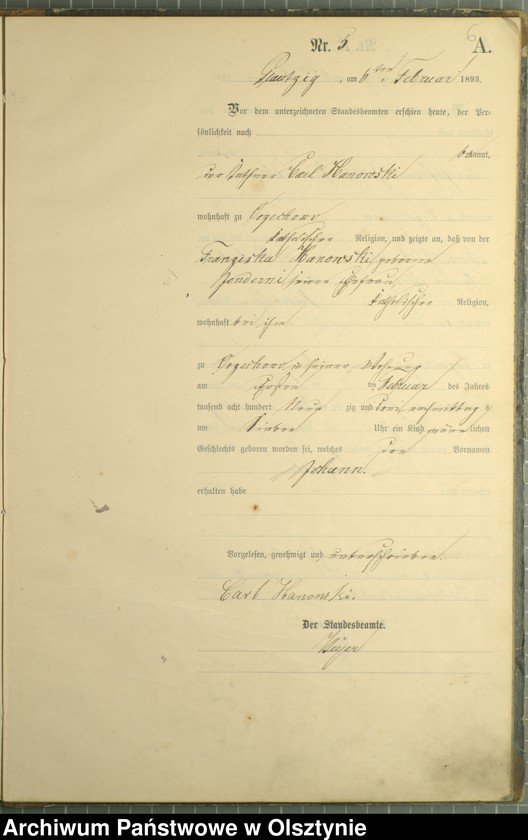 Nr. 5. A.
am 6ten Februar 1893.
Vor dem unterzeichneten Standesbeamten erschien heute, der Per-
sönlichkeit nach
bekannt,
Carl Hanowski
wohnhaft zu
katholischer Religion, und zeigte an, daß von der
Franziska Hanowski geborene
seiner Ehefrau
katholischer Religion,
wohnhaft bei ihm
zu in seiner Wohnung
am ersten Februar des Jahres
tausend acht hundert neunzig und drei nachmittags
um sieben Uhr ein Kind männlichen
Geschlechts geboren worden sei, welches den Vornamen
Johann.
erhalten habe
Vorgelesen, genehmigt und unterschrieben.
Carl Hanowski.
Der Standesbeamte.
Archiwum Państwowe w Olsztynie